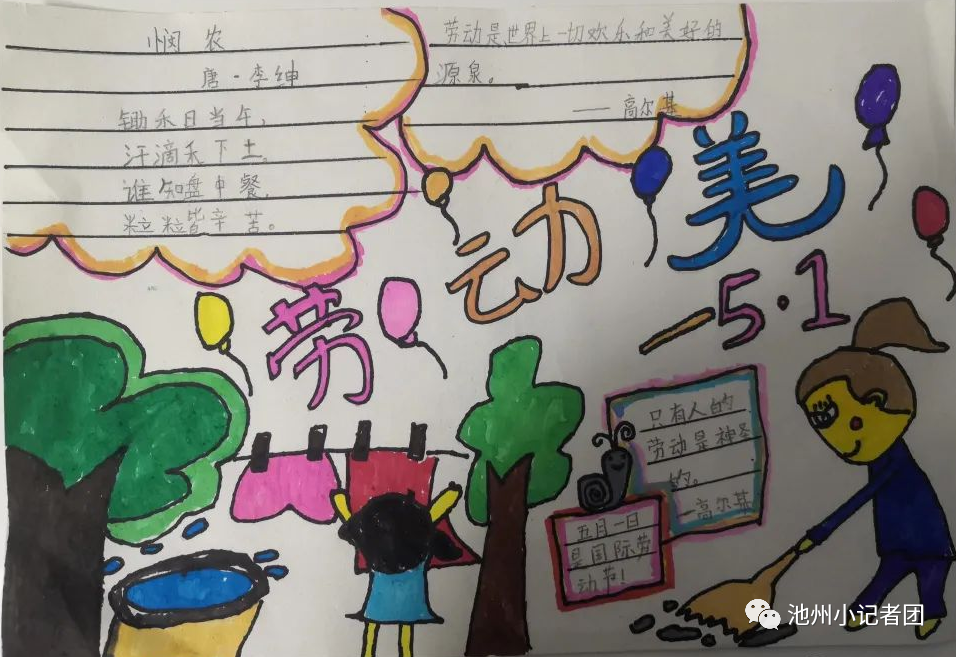 悯 农
唐·李绅
锄禾日当午，
汗滴禾下土。
谁知盘中餐，
粒粒皆辛苦。
劳动是世界上一切欢乐和美好的
源泉。
——高尔基
劳动美
—5·1
只有人的
劳动是神圣
的。
—高尔基
五月一日
是国际劳
动节！
池州小记者团